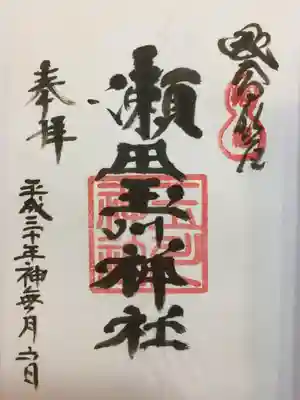 瀬田玉川神社
奉拝
平成三十年神無月六日